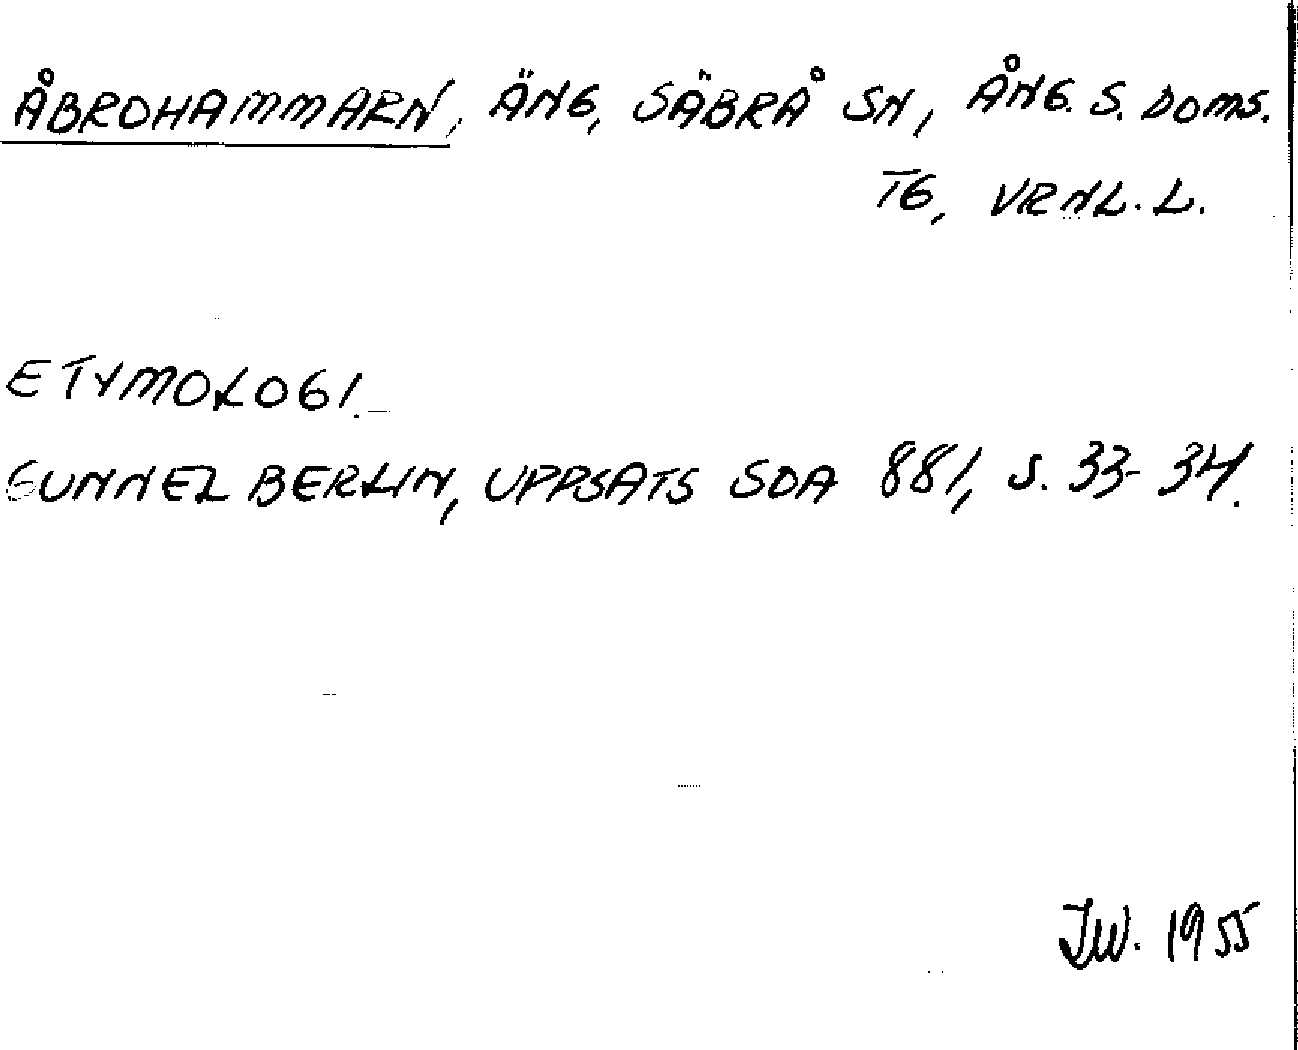 ÅBROHAMMARN, ÄNG, SÄBRÅ SN, ÅNG. S. DOMS.
TG, VRNL. L.
ETYMOLOGI.
GUNNEL BERLIN, UPPSATS SOA 881, S. 33-34.
JW. 1955